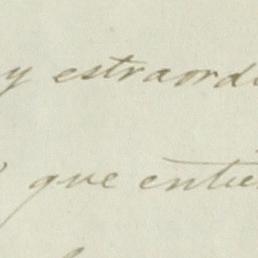 y estraordi
que entie